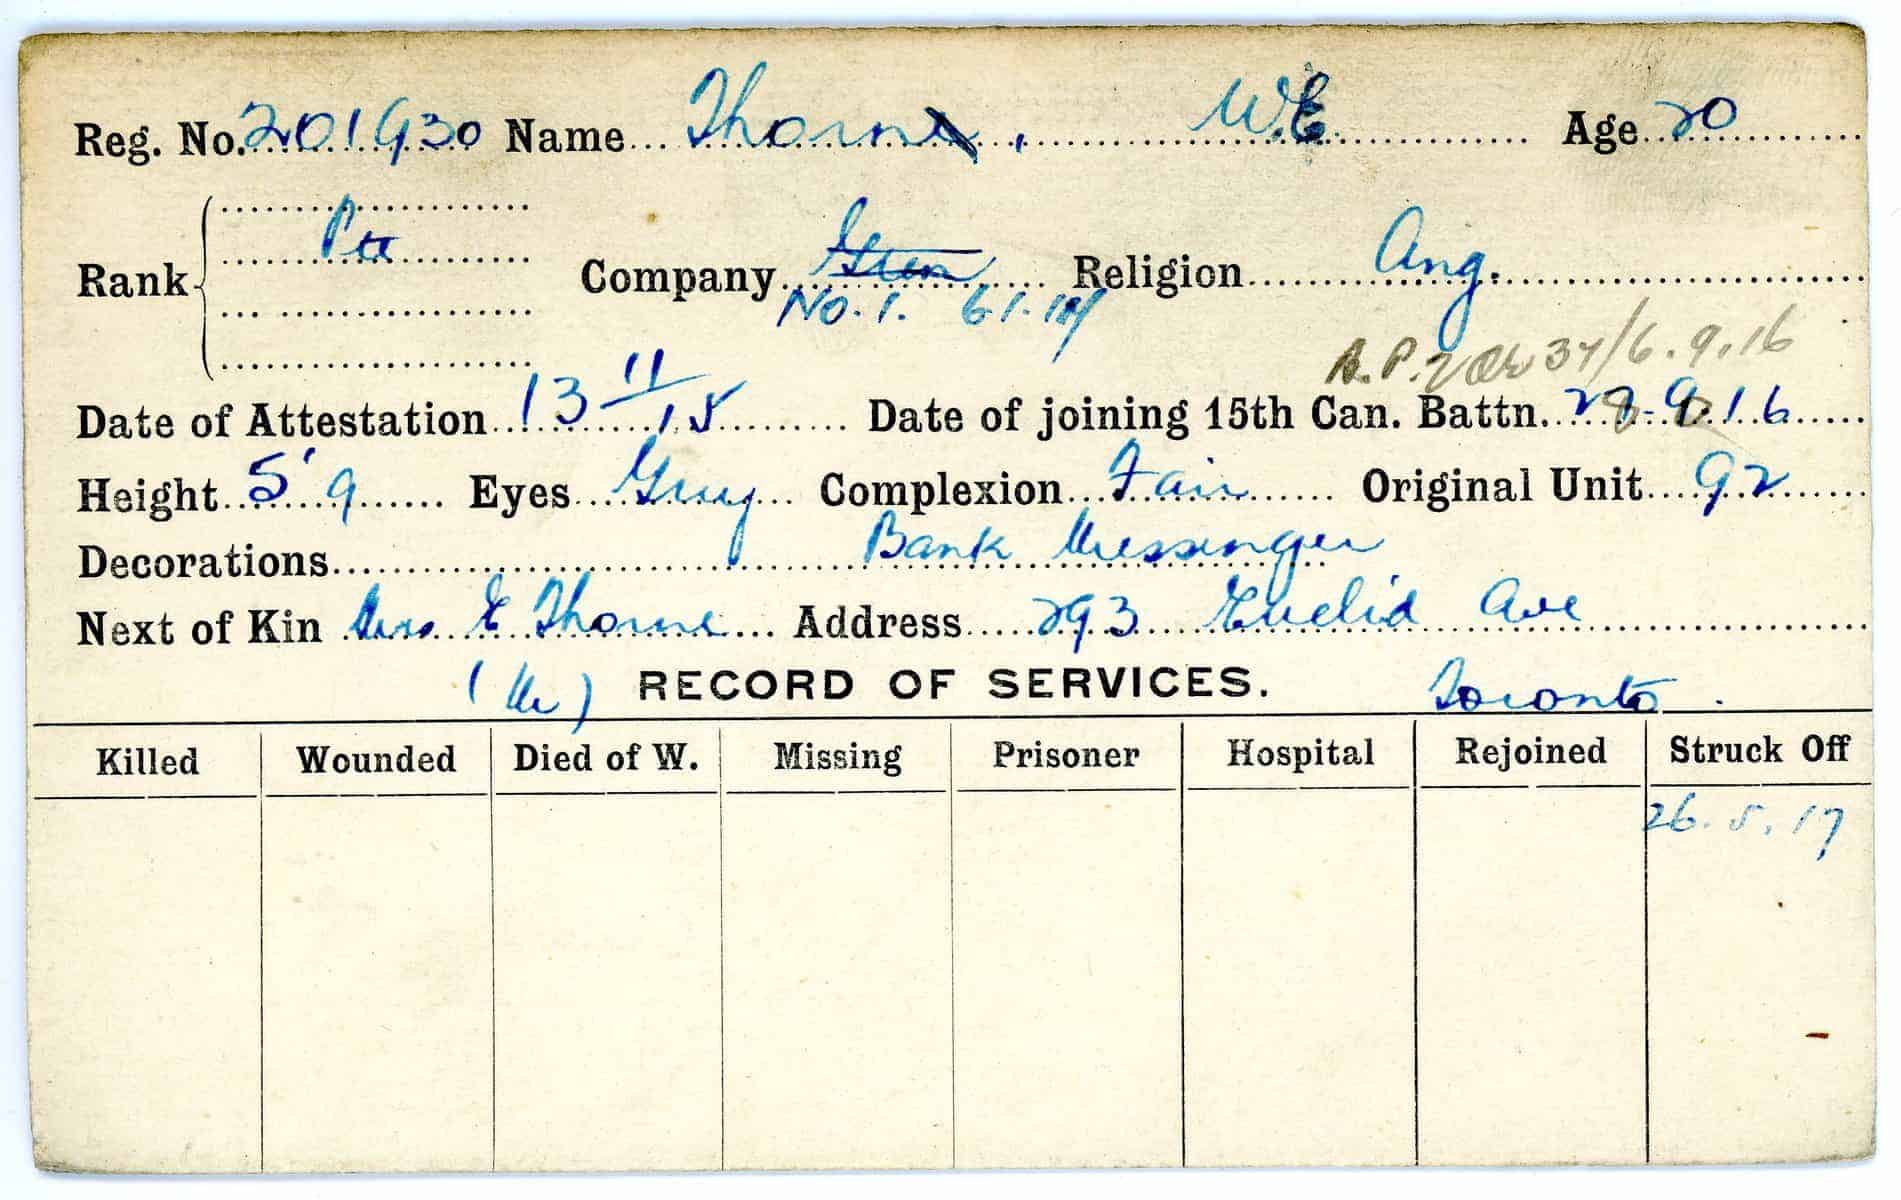 Reg. No. 201930 Name Thorne, W.E. Age 20
Pte
Rank Company Green Religion Ang.
No. 1. 6.1.17
34/6.9.16
Date of Attestation 13 11/15 Date of joining 15th Can. Battn. 16
Height 5' 9 Eyes Grey Complexion Fair Original Unit 92
Decorations Bank Messenger
Next of Kin Mrs E Thorne Address 293 Euclid Ave
(M) RECORD OF SERVICES. Toronto.
Killed Wounded Died of W. Missing Prisoner Hospital Rejoined Struck Off
26.5.17